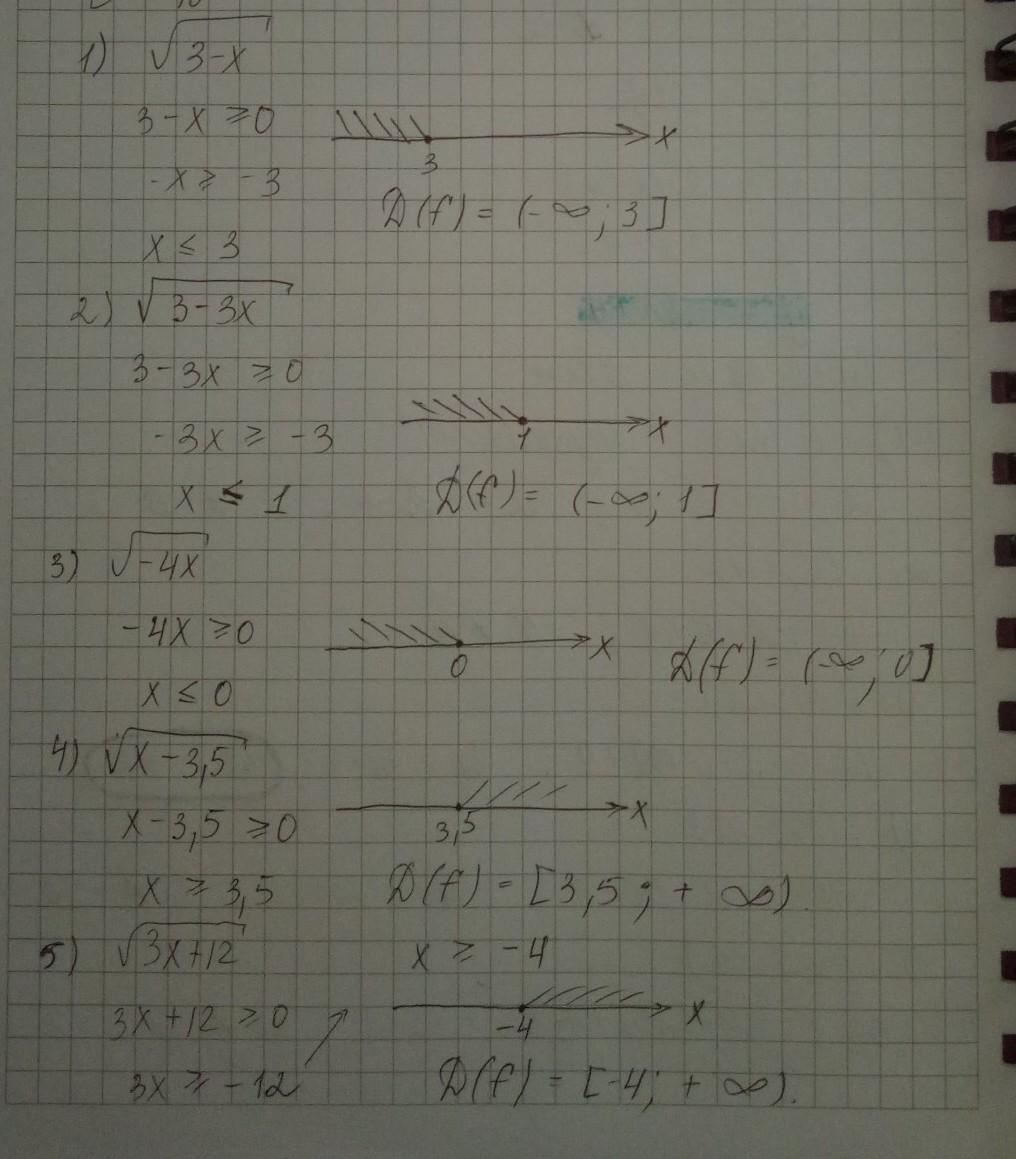 1) √3-x
3-x ≥0
-x ≥ -3
x ≤ 3
3 x
D(f) = (-∞; 3]
2) √3-3x
3-3x ≥0
-3x ≥ -3
x ≤ 1
1 x
D(f) = (-∞; 1]
3) √-4x
-4x ≥0
x ≤ 0
0 x
D(f) = (-∞; 0]
4) √x-3,5
x-3,5 ≥0
x ≥ 3,5
3,5 x
D(f) = [3,5; +∞).
5) √3x+12
3x+12 ≥0
3x ≥ -12
x ≥ -4
-4 x
D(f) = [-4; +∞).